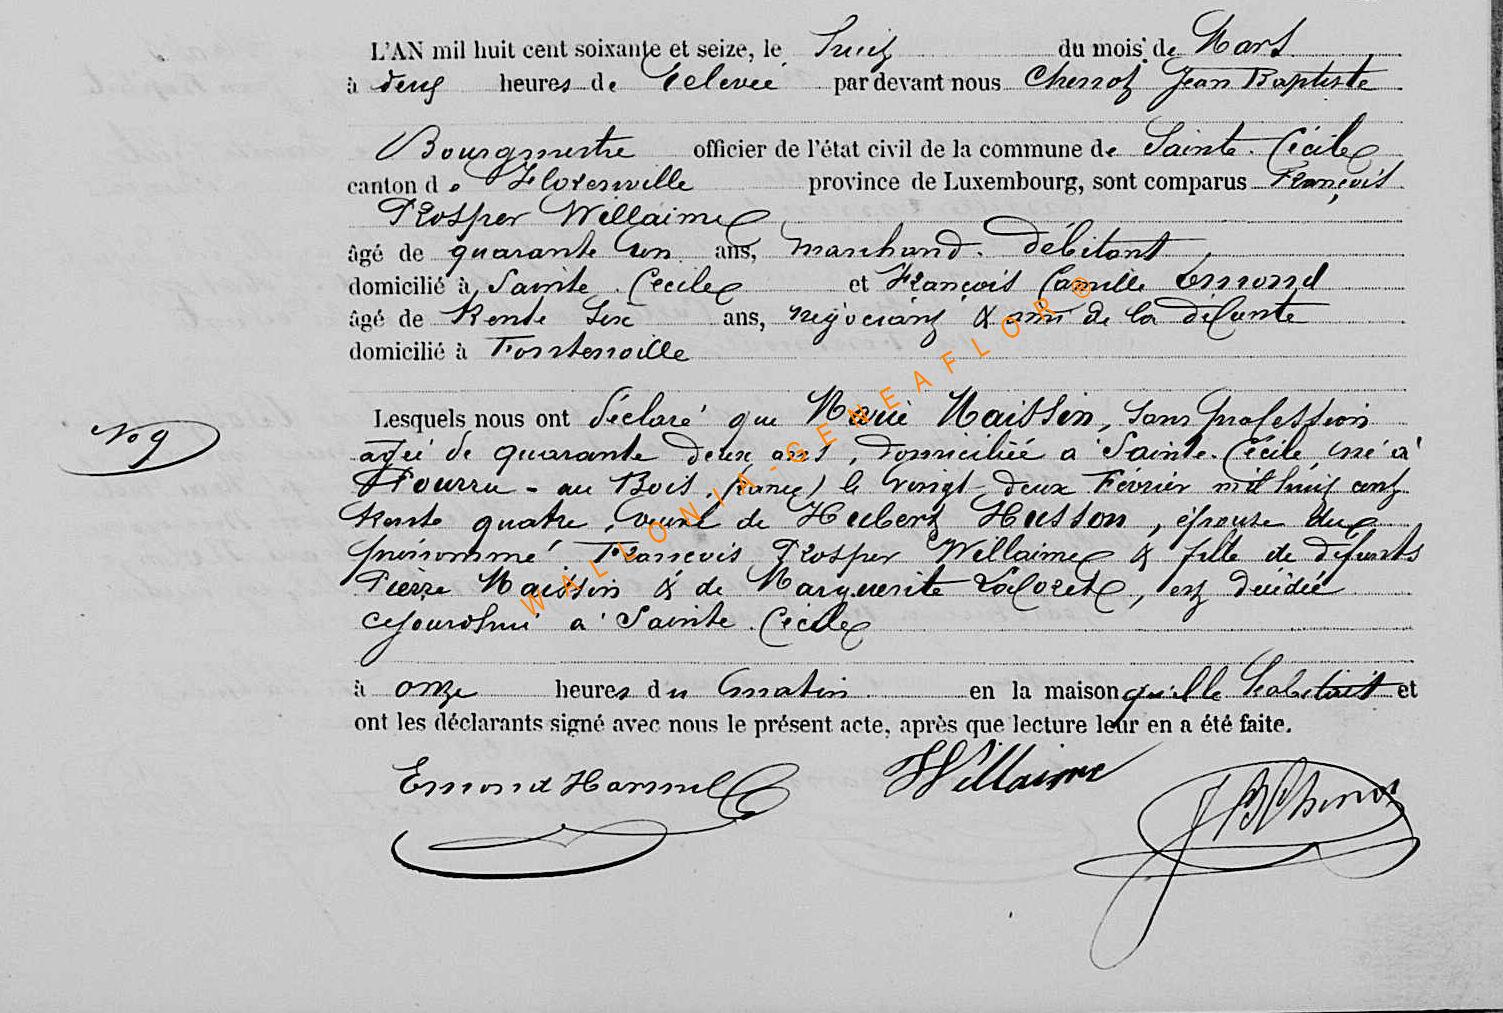 L'AN mil huit cent soixante et seize, le huit du mois de Mars
à deux heures de relevée par devant nous Chenot Jean Baptiste
Bourgmestre officier de l'état civil de la commune de Sainte-Cécile
canton de Florenville province de Luxembourg, sont comparus François
Prosper Willaime
âgé de quarante un ans, marchand-débitant
domicilié à Sainte-Cecile et François Camille Emond
âgé de trente six ans, négociant & ami de la défunte
domicilié à Fontenoille
Lesquels nous ont déclaré que Marie Maissin, sans profession
No 9
agée de quarante deux ans, domiciliée à Sainte-Cécile né à
Pourru-au Bois, (France) le vingt-deux Février mil huit cent
trente quatre, veuve de Hubert Husson, épouse du
prénommé François Prosper Willaime & fille de défunts
Pierre Maissin & de Marguerite, est décédée
cejourd'hui à Sainte-Cécile
à onze heures du matin en la maison qu'elle habitait et
ont les déclarants signé avec nous le présent acte, après que lecture leur en a été faite.
Emond Hammel Willaime JBChenot
WALLONIA-GENEAFLOR ©